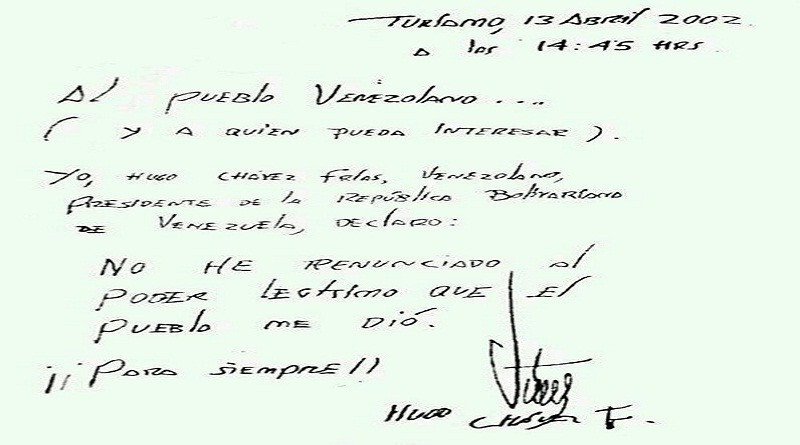 TURIAMO, 13 ABRIL 2002
A las 14:45 HRS.
Al PUEBLO VENEZOLANO...
( Y A QUIEN PUEDA INTERESAR ).
Yo, HUGO CHÁVEZ FRÍAS, VENEZOLANO,
PRESIDENTE DE LA REPÚBLICA BOLIVARIANA
DE VENEZUELA, DECLARO:
NO HE RENUNCIADO Al
PODER LEGÍTIMO QUE El
PUEBLO ME DIÓ.
¡¡PARA SIEMPRE!!
HUGO CHÁVEZ F.